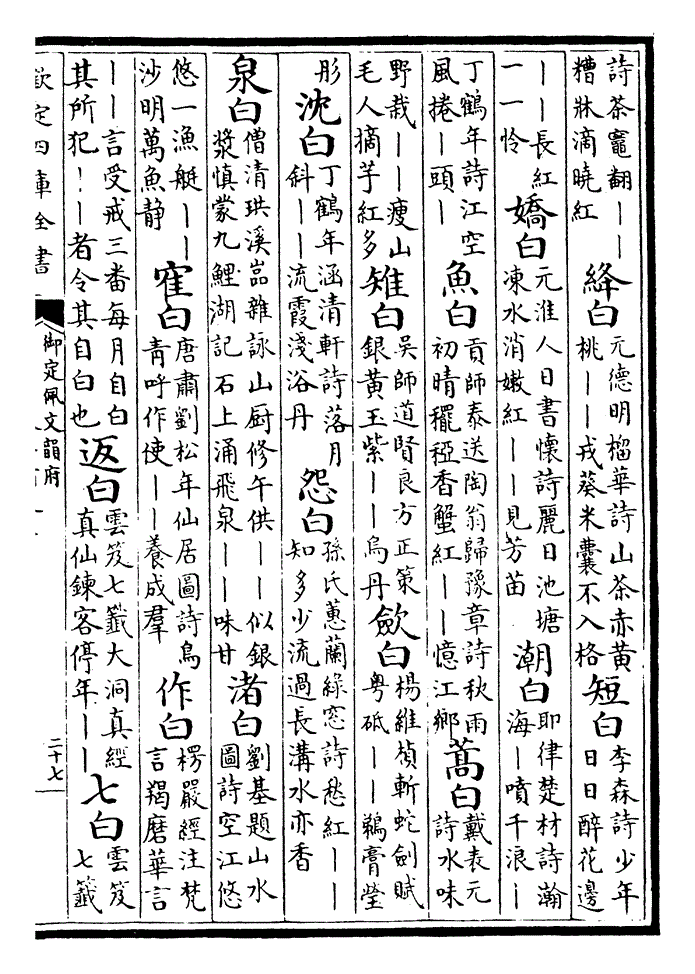 詩茶竈翻丨丨
糟牀滴曉紅
絳白
元德明榴華詩山茶赤黃
桃丨丨戎葵米囊不入格
短白
李森詩少年
日日醉花邊
丨丨長紅
一一怜
嬌白
元淮人日書懷詩麗日池塘
凍水消嫩紅丨丨見芳苗
潮白
耶律楚材詩瀚
海丨噴千浪丨
丁鶴年詩江空
風捲丨頭丨
魚白
貢師泰送陶翁歸豫章詩秋雨
初晴䆉稏香蟹紅丨丨憶江鄉
蒿白
戴表元
詩水味
野栽丨丨瘦山
毛人摘芋紅多
雉白
吳師道賢良方正策
銀黃玉紫丨丨烏丹
歛白
楊維楨斬蛇劍賦
粤砥丨丨鵜膏瑩
彤
沈白
丁鶴年涵清軒詩落月
斜丨丨流霞淺浴丹
怨白
孫氏蕙蘭綠窓詩愁紅丨丨
知多少流過長溝水亦香
泉白
僧清珙溪嵓雜詠山厨修午供丨丨似銀
漿慎蒙九鯉湖記石上涌飛泉丨丨味甘
渚白
劉基題山水
圖詩空江悠
悠一漁艇丨丨
沙明萬魚静
寉白
唐肅劉松年仙居圖詩烏
青呼作使丨丨養成羣
作白
楞嚴經注梵
言羯磨華言
丨丨言受戒三番每月自白
其所犯丨丨者令其自白也
返白
雲笈七籖大洞真經
真仙鍊客停年丨丨
七白
雲笈
七籖
欽定四庫全書
御定佩文韻府
二十七